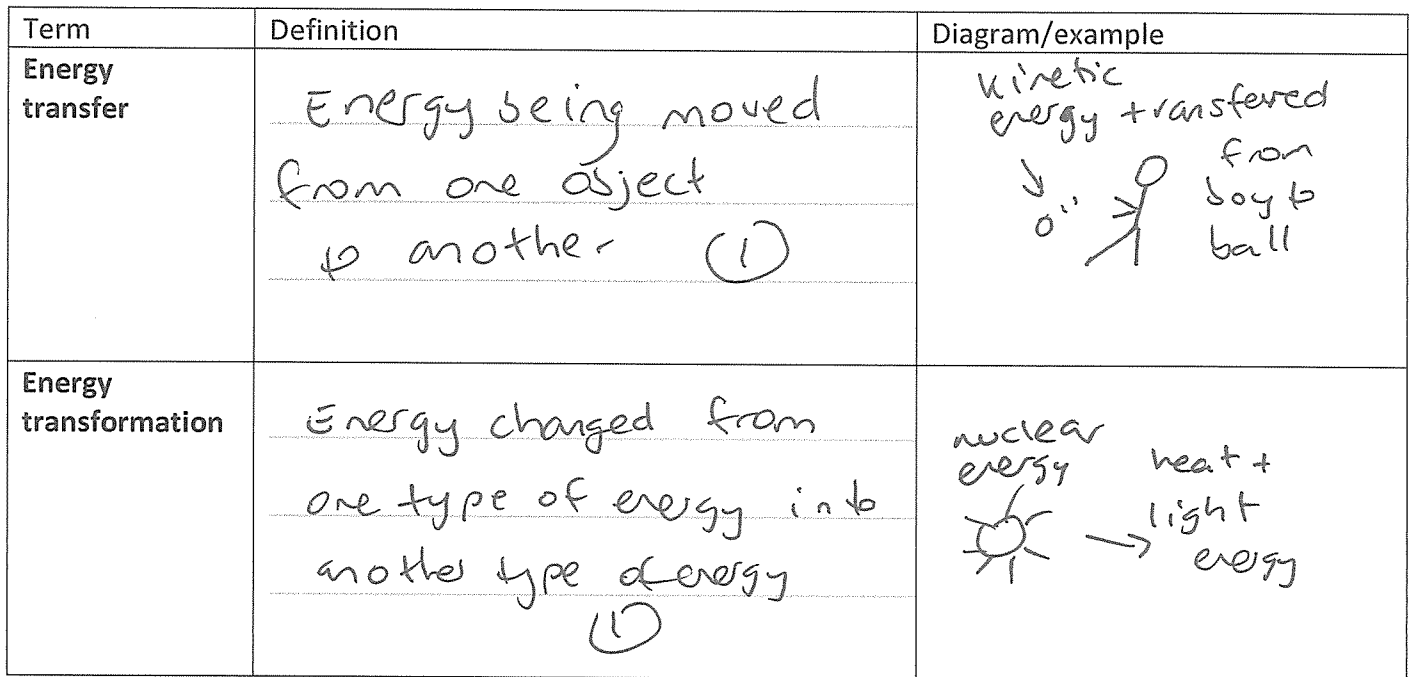 Term
Definition
Diagram/example
Energy
transfer
Energy being moved
from one object
to another ①
kinetic
energy transfered
from
boy to
ball
Energy
transformation
Energy changed from
one type of energy into
another type of energy
①
nuclear
energy
heat +
light
energy